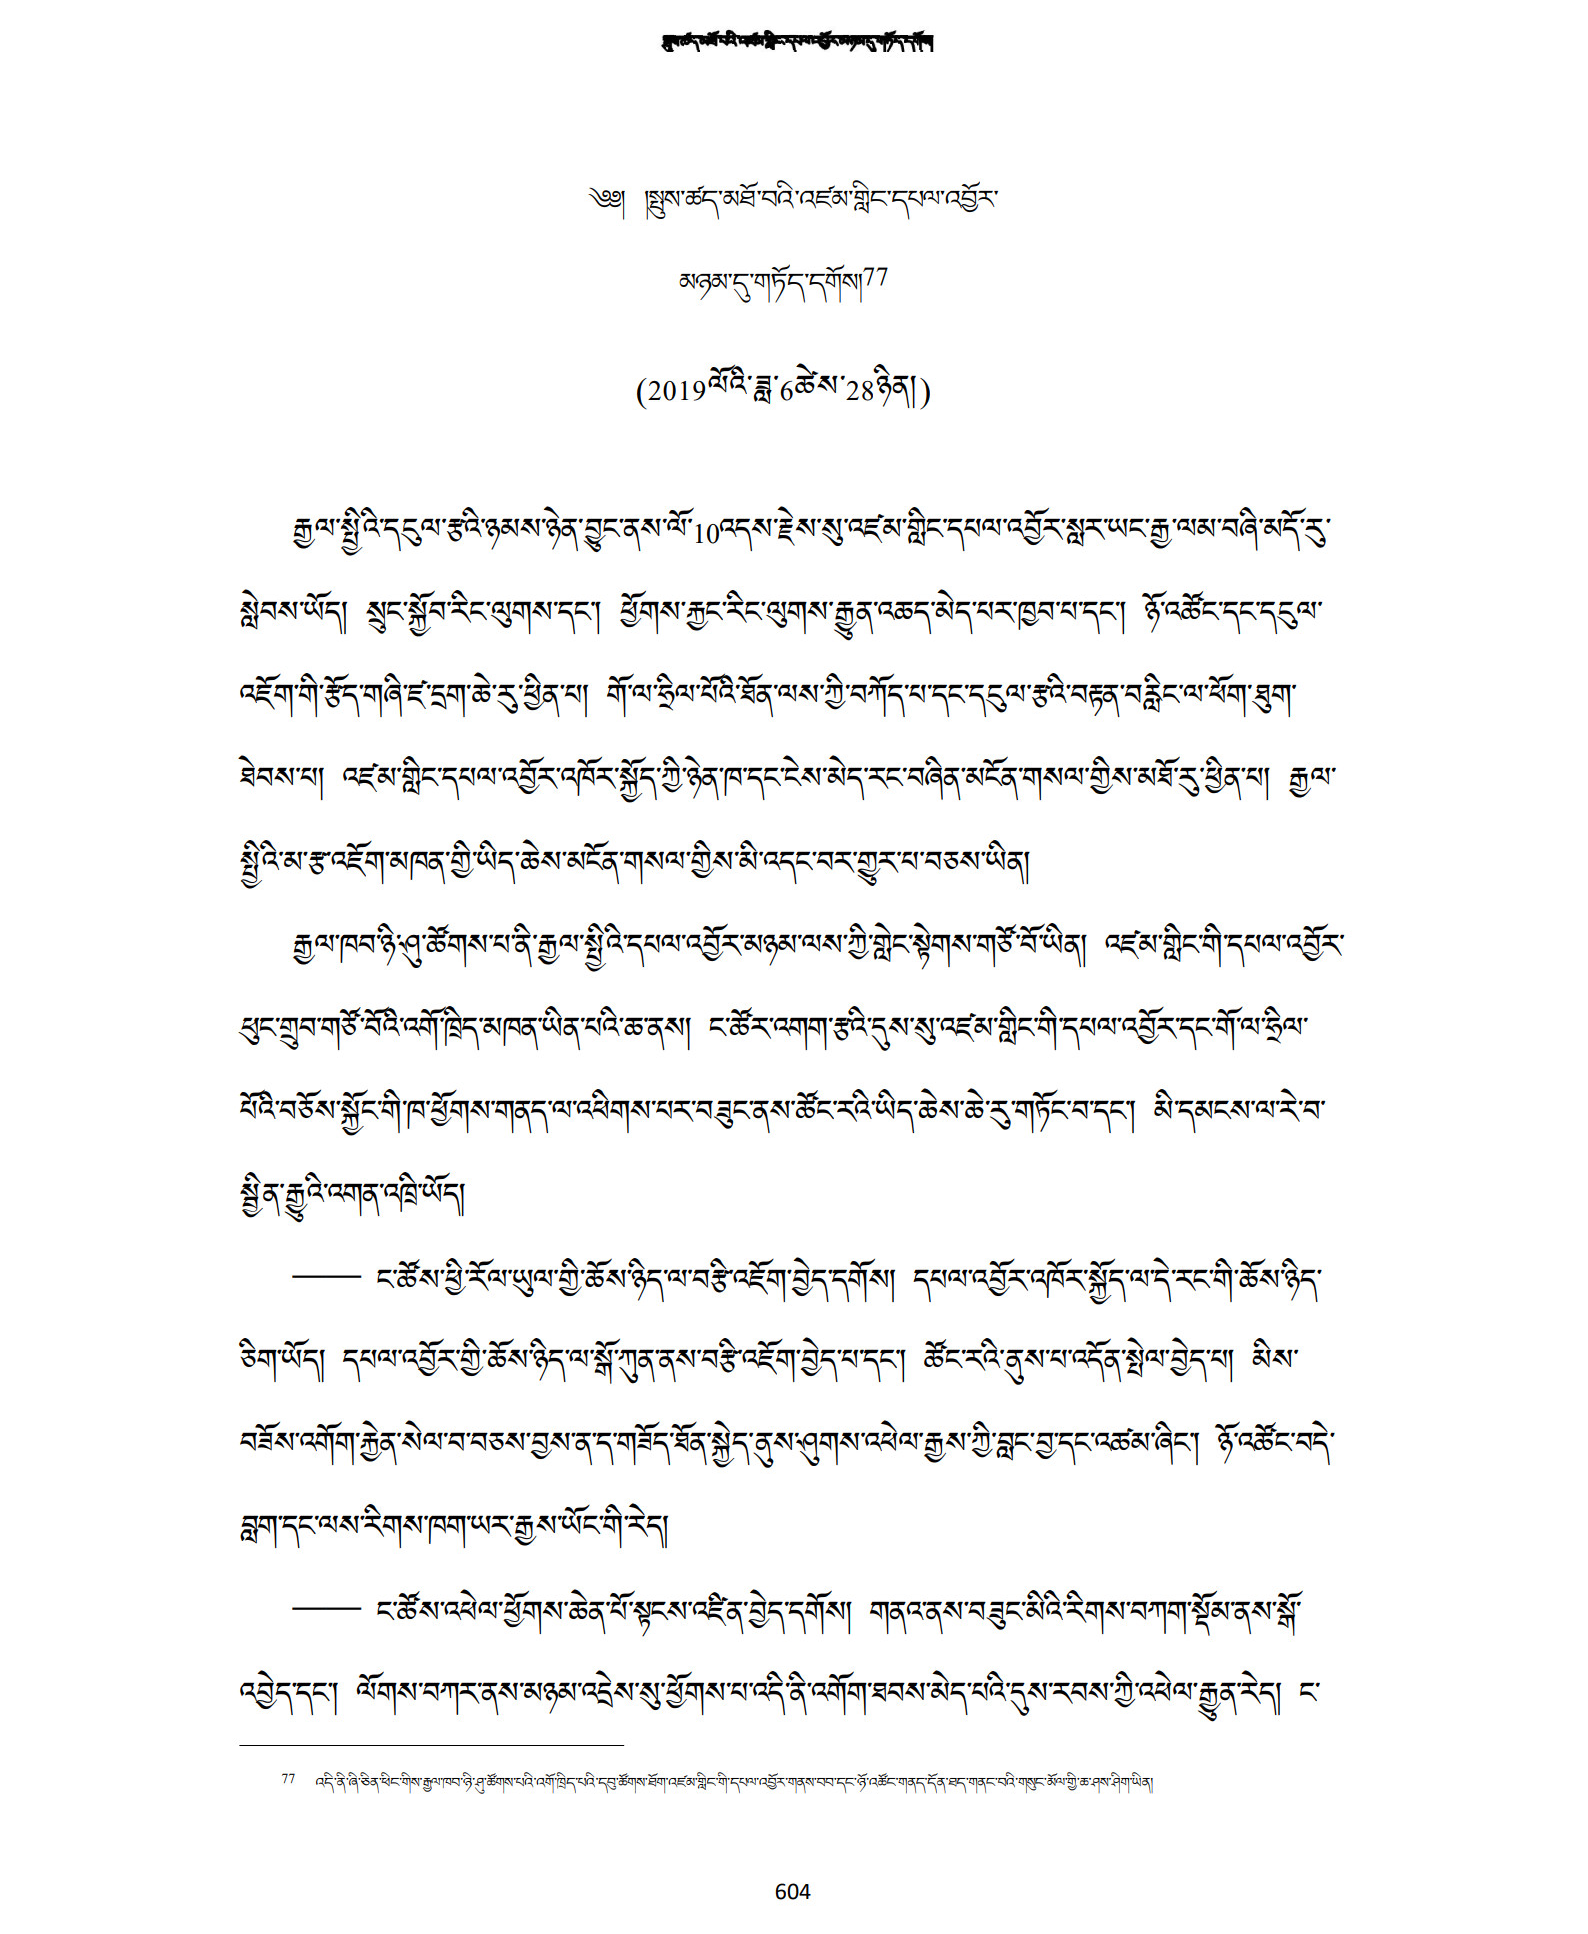 སྤུས་ཚད་མཐོ་བའི་འཛམ་གླིང་དཔལ་འབྱོར་མཉམ་དུ་གཏོད་དགོས།
༄༅། །སྤུས་ཚད་མཐོ་བའི་འཛམ་གླིང་དཔལ་འབྱོར་
མཉམ་དུ་གཏོད་དགོས།77
(2019ལོའི་ཟླ་6ཚེས་28ཉིན།)
རྒྱལ་སྤྱིའི་དངུལ་རྩའི་ཉམས་ཉེན་བྱུང་ནས་ལོ་10འདས་རྗེས་སུ་འཛམ་གླིང་དཔལ་འབྱོར་སླར་ཡང་རྒྱ་ལམ་བཞི་མདོ་རུ་
སླེབས་ཡོད། སྲུང་སྐྱོབ་རིང་ལུགས་དང་། ཕྱོགས་རྐྱང་རིང་ལུགས་རྒྱུན་འཆད་མེད་པར་ཁྱབ་པ་དང་། ཉོ་འཚོང་དང་དངུལ་
འཇོག་གི་རྩོད་གཞི་ཛ་དྲག་ཆེ་རུ་ཕྱིན་པ། གོ་ལ་ཧྲིལ་པོའི་ཐོན་ལས་ཀྱི་བཀོད་པ་དང་དངུལ་རྩའི་བརྟན་བརླིང་ལ་ཕོག་ཐུག་
ཐེབས་པ། འཛམ་གླིང་དཔལ་འབྱོར་འཁོར་སྐྱོད་ཀྱི་ཉེན་ཁ་དང་ངེས་མེད་རང་བཞིན་མངོན་གསལ་གྱིས་མཐོ་རུ་ཕྱིན་པ། རྒྱལ་
སྤྱིའི་མ་རྩ་འཇོག་མཁན་གྱི་ཡིད་ཆེས་མངོན་གསལ་གྱིས་མི་འདང་བར་གྱུར་པ་བཅས་ཡིན།
རྒྱལ་ཁབ་ཉི་ཤུ་ཚོགས་པ་ནི་རྒྱལ་སྤྱིའི་དཔལ་འབྱོར་མཉམ་ལས་ཀྱི་གླེང་སྟེགས་གཙོ་བོ་ཡིན། འཛམ་གླིང་གི་དཔལ་འབྱོར་
ཕུང་གྲུབ་གཙོ་བོའི་འགོ་ཁྲིད་མཁན་ཡིན་པའི་ཆ་ནས། ང་ཚོར་འགག་རྩའི་དུས་སུ་འཛམ་གླིང་གི་དཔལ་འབྱོར་དང་གོ་ལ་ཧྲིལ་
པོའི་བཅོས་སྐྱོང་གི་ཁ་ཕྱོགས་གནད་ལ་འཕིགས་པར་བཟུང་ནས་ཚོང་རའི་ཡིད་ཆེས་ཆེ་རུ་གཏོང་བ་དང་། མི་དམངས་ལ་རེ་བ་
སྦྱིན་རྒྱུའི་འགན་འཁྲི་ཡོད།
—— ང་ཚོས་ཕྱི་རོལ་ཡུལ་གྱི་ཆོས་ཉིད་ལ་བརྩི་འཇོག་བྱེད་དགོས། དཔལ་འབྱོར་འཁོར་སྐྱོད་ལ་དེ་རང་གི་ཆོས་ཉིད་
ཅིག་ཡོད། དཔལ་འབྱོར་གྱི་ཆོས་ཉིད་ལ་སྒོ་ཀུན་ནས་བརྩི་འཇོག་བྱེད་པ་དང་། ཚོང་རའི་ནུས་པ་འདོན་སྤེལ་བྱེད་པ། མིས་
བཟོས་འགོག་རྐྱེན་སེལ་བ་བཅས་བྱས་ན་ད་གཟོད་ཐོན་སྐྱེད་ནུས་ཤུགས་འཕེལ་རྒྱས་ཀྱི་བླང་བྱ་དང་འཚམ་ཞིང་། ཉོ་འཚོང་བདེ་
བླག་དང་ལས་རིགས་ཁག་ཡར་རྒྱས་ཡོང་གི་རེད།
—— ང་ཚོས་འཕེལ་ཕྱོགས་ཆེན་པོ་སྟངས་འཛིན་བྱེད་དགོས། གནའ་ནས་བཟུང་མིའི་རིགས་བཀག་སྡོམ་ནས་སྒོ་
འབྱེད་དང་། ལོགས་བཀར་ནས་མཉམ་འདྲེས་སུ་ཕྱོགས་པ་འདི་ནི་འགོག་ཐབས་མེད་པའི་དུས་རབས་ཀྱི་འཕེལ་རྒྱུན་རེད། ང་
77 འདི་ནི་ཞི་ཅིན་ཕིང་གིས་རྒྱལ་ཁབ་ཉི་ཤུ་ཚོགས་པའི་འགོ་ཁྲིད་པའི་དབུ་ཚོགས་ཐོག་འཛམ་གླིང་གི་དཔལ་འབྱོར་གནས་བབ་དང་ཉོ་འཚོང་གནད་དོན་ཐད་གནང་བའི་གསུང་མོལ་གྱི་ཆ་ཤས་ཤིག་ཡིན།
604